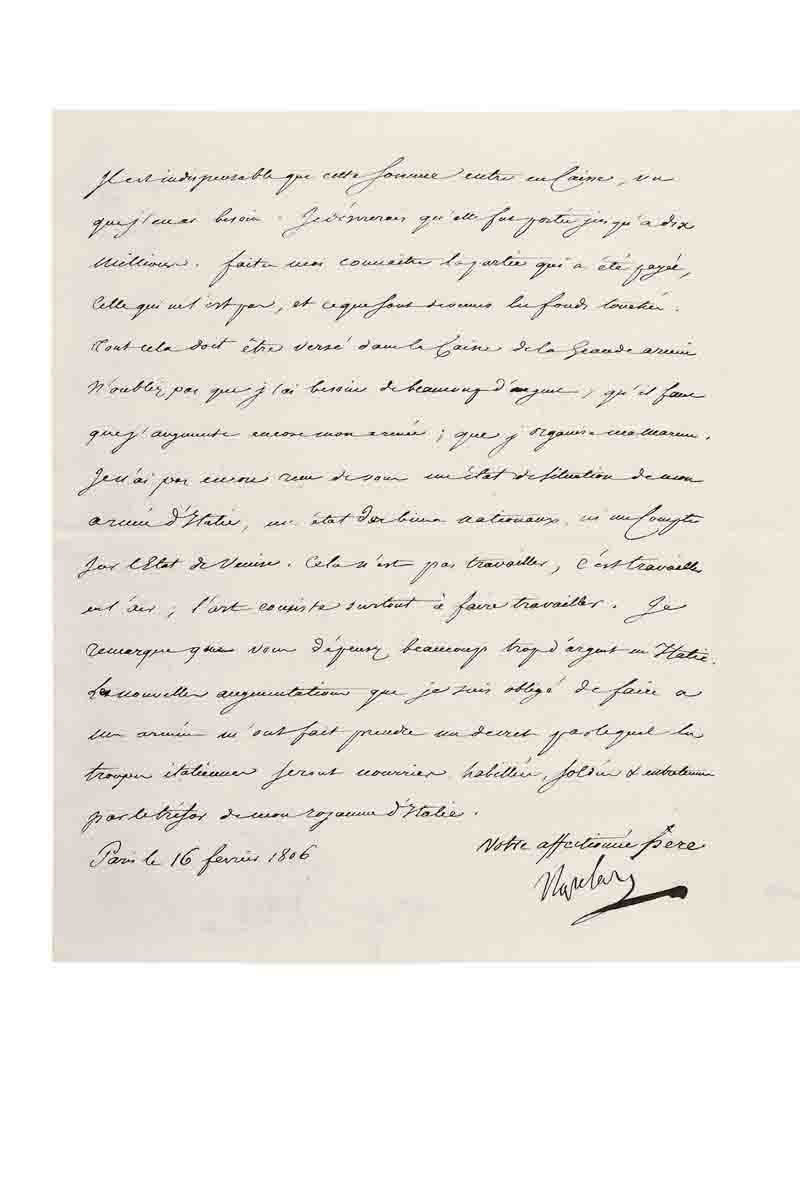 Il est indispensable que cette somme entre en Caisse, vu
que j'en ai besoin. Je désirerais qu'elle fut portée jusqu'à dix
Millions. faites moi connaitre la partie qui a été payée,
Celle qui ne l'est pas, et ce que sont devenus les fonds touchés.
Tout cela doit être versé dans la Caisse de la Grande armée
N'oubliez pas que j'ai besoin de beaucoup d'argent, qu'il faut
que j'augmente encore mon armée; que j'organise ma marine.
Je n'ai pas encore reçu de vous un état de Situation de mon
armée d'Italie, ni état des biens nationaux, ni un Compte
Sur l'Etat de Venise. Cela n'est pas travailler, c'est travailler
en l'air; l'art consiste surtout à faire travailler. Je
remarque que vous dépensez beaucoup trop d'argent en Italie.
Les nouvelles augmentations que je suis obligé de faire a
mon armée m'ont fait prendre un decret par lequel les
troupes italiennes seront nourries, habillées, soldées & entretenues
par le trésor de mon royaume d'Italie.
Paris le 16 fevrier 1806
Votre affectionné Père